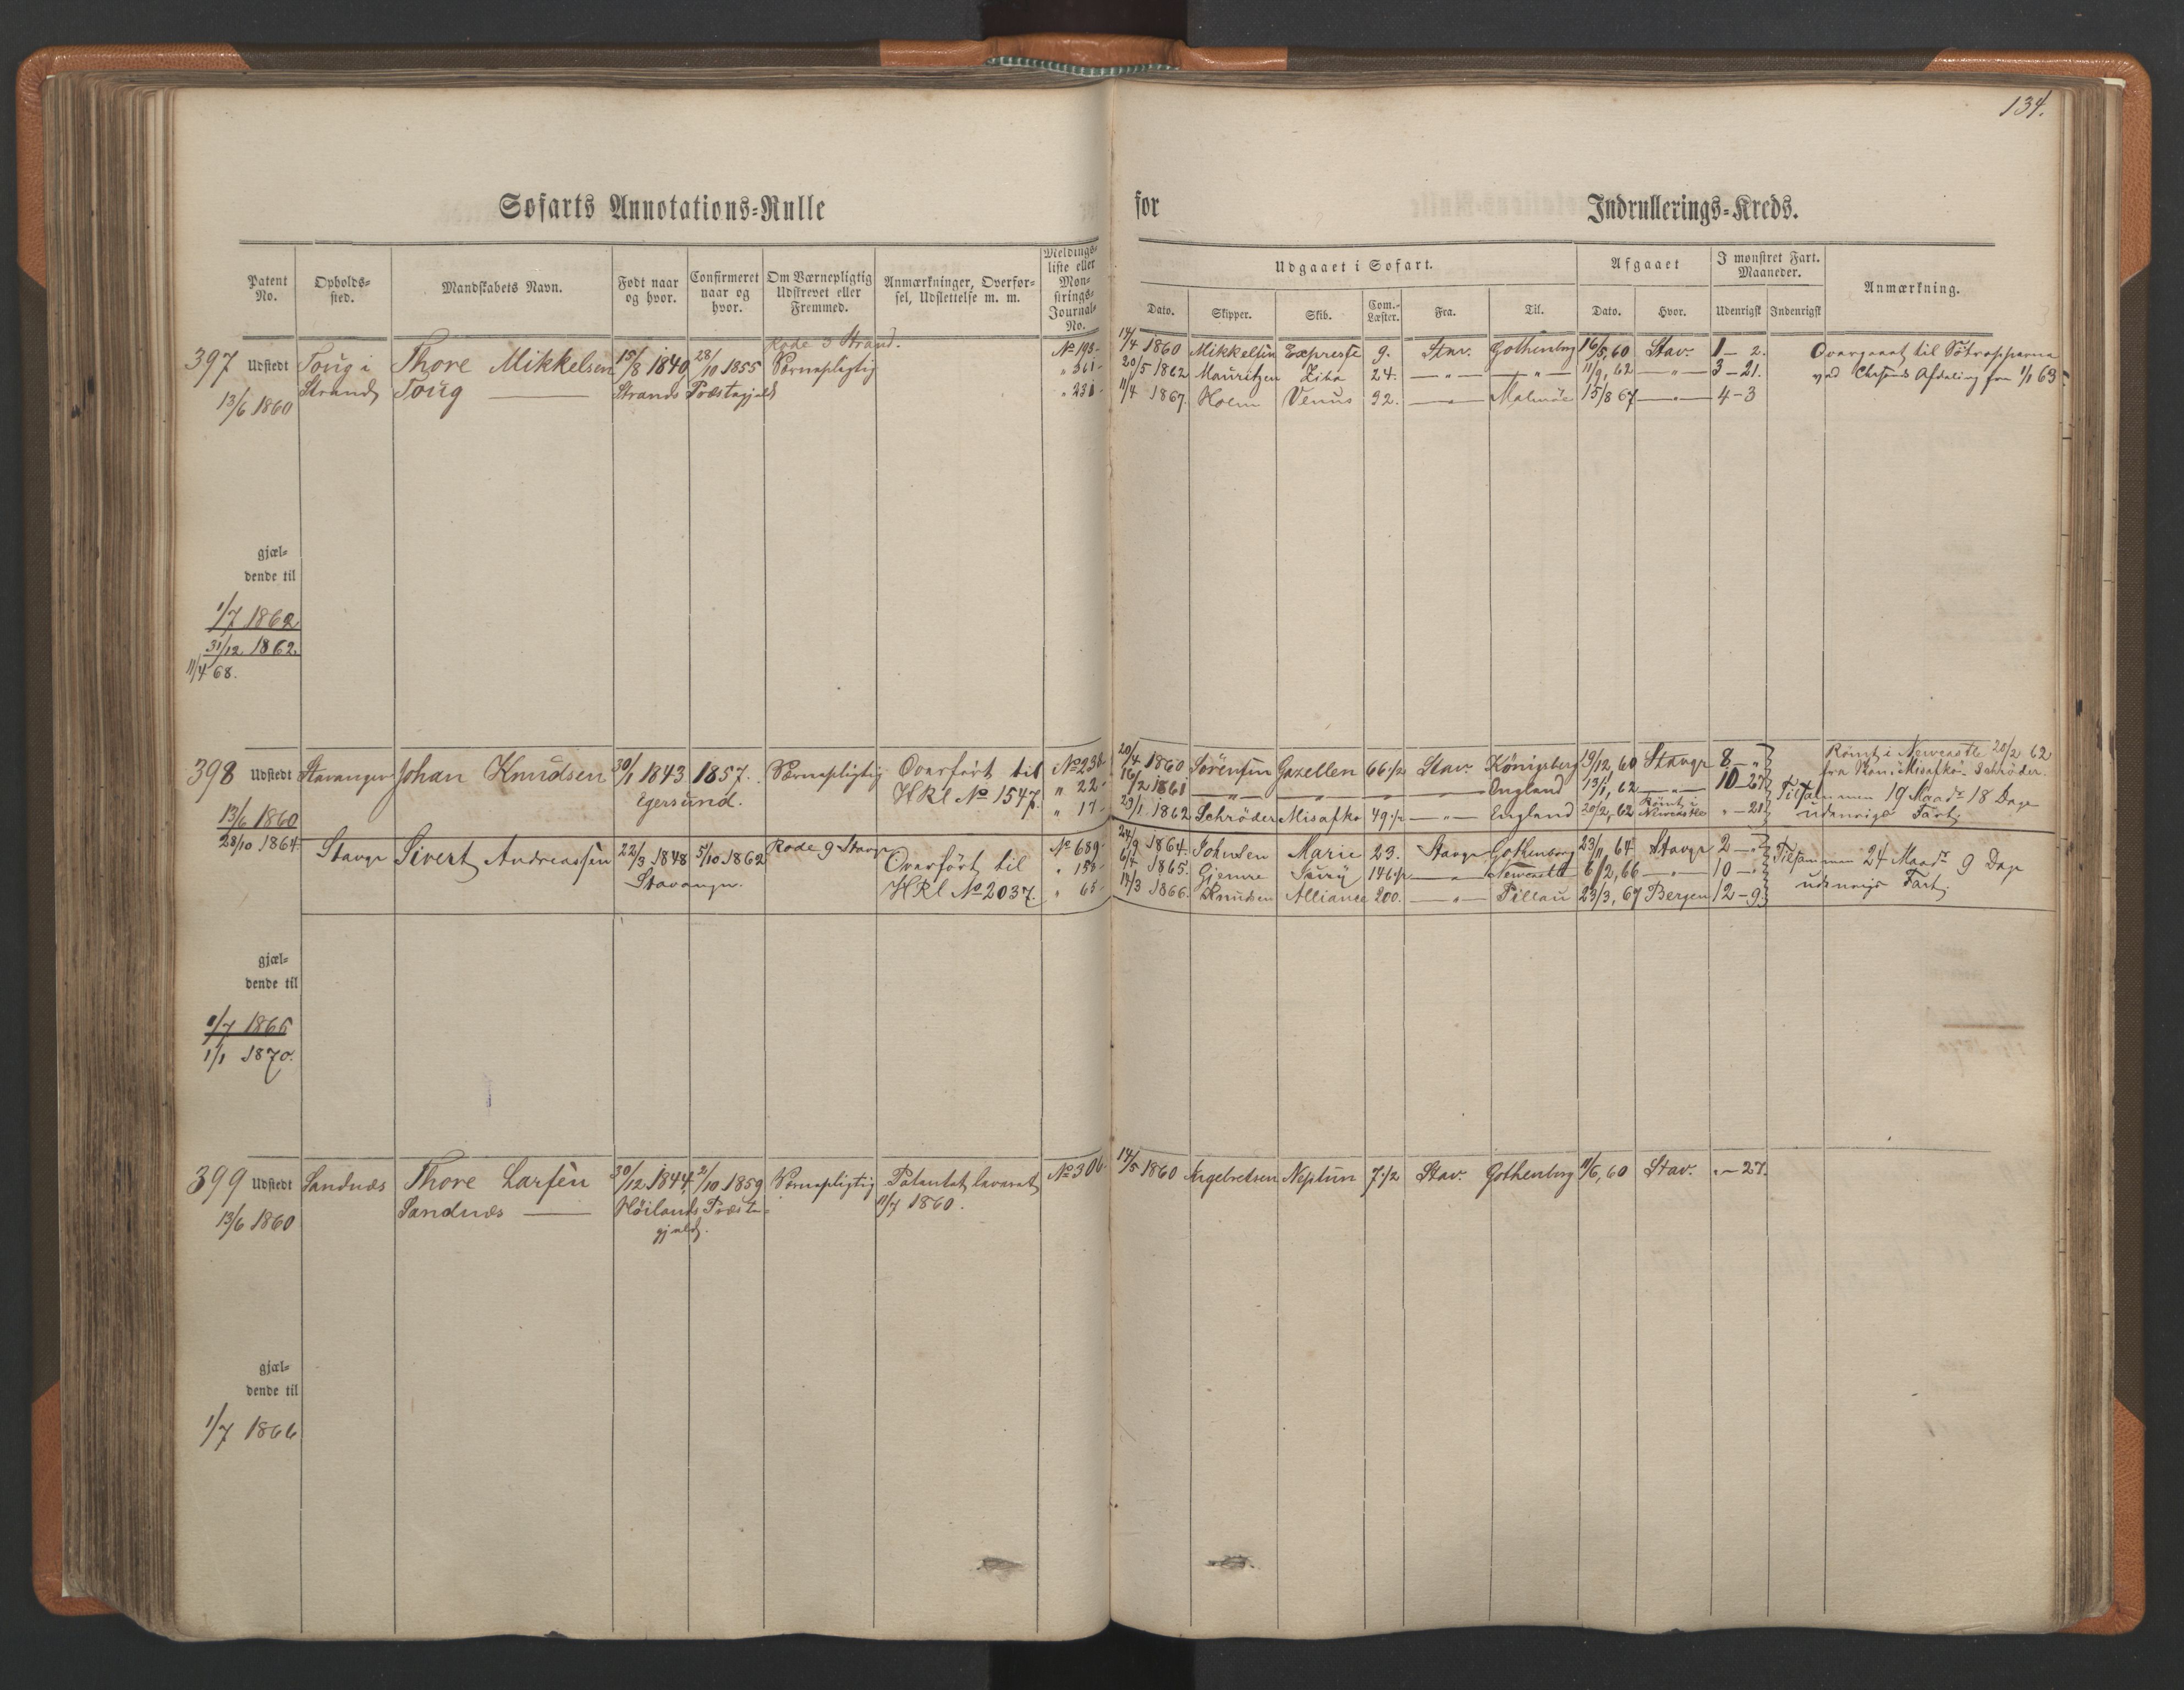 134.
Søfarts Annotations=Rulle for Indrullerings=Kreds.
Patent No. Opholds=sted. Mandskabets Navn. Født naar og hvor. Confirmeret naar og hvor. Om Værnepligtig Udskrevet eller Fremmed. Anmærkninger, Overførsel, Udslettelse m. m. Meldings=liste eller Mønstrings=Journal=No.
Udgaaet i Søfart. Afgaaet I mønstret Fart. Maaneder. Anmærkning.
Dato. Skipper. Skib. Com.=Læster. Fra. Til. Dato. Hvor. Udenrigsk Indenrigsk
Rode 3 Strand.
397 Udstedt Toug i Thore Mikkelsen 15/8 1840 28/10 1855 Værnepligtig No 193 14/4 1860 Mikkelsen Expresse 9. Stav. Gothenborg 16/5, 60 Stav. 1 - 2. Overgaaet til Søtropperne
13/6 1860 Strand Toug Strands Præstegjeld " 361 20/5 1862 Mauritzen Ziba 24. " " 11/9, 62 " 3 - 21. ved Chrsands Afdeling fra 1/1 63
" 231 11/4 1867. Holm Venus 32. " Malmöe 15/8 67 " 4 - 3
gjæl=
dende til
1/7 1862
31/12 1862.
11/4 68.
398 Udstedt Stavanger Johan Knudsen 30/1 1843 1857. Værnepligtig Overført til No 236 20/4 1860 Sörensen Gazellen 66 1/2 Stav. Königsberg 19/12, 60 Stavgr 8 - " Römt i Newcastle 20/2 62
Egersund. HRl No 1547. " 22 16/2 1861 " " " " England 13/1, 62 " 10 - 27 fra Schröder.
13/6 1860 " 17 29/1 1862 Schröder Misafko 49 1/2 " England 20/2, 62 Römt i Newcastle " - 21 Tilsammen 19 Maadr 18 Dage udenrigs Fart.
28/10 1864 Stavgr Sivert Andreassen 22/3 1848 5/10 1862 Rode 9 Stavgr Overført til No 689 24/9 1864. Johnsen Marie 23. Stavgr Gothenborg 23/11, 64 Stavgr 2 - " Tilsammen 24 Maadr 9 Dage
Stavanger. HRl No 2037. " 158 6/4 1865. Gjemre 146 1/2 " Newcastle 6/2, 66 " 10 - " udenrigs Fart.
" 65 14/3 1866. Knudsen Alliance 200. " Pillau 23/3, 67 Bergen 12 - 9
gjæl=
dende til
1/7 1865
1/1 1870.
399 Udstedt Sandnæs Thore Larsen 30/12 1844 2/10 1859 Værnepligtig Patentet leveret No 306 14/5 1860 Ingebretsen Neptun 7 1/2 Stav. Gothenborg 11/6, 60 Stav. " - 27.
13/6 1860 Sandnæs Höilands Præste= 11/7 1860.
gjeld.
gjæl=
dende til
1/7 1866